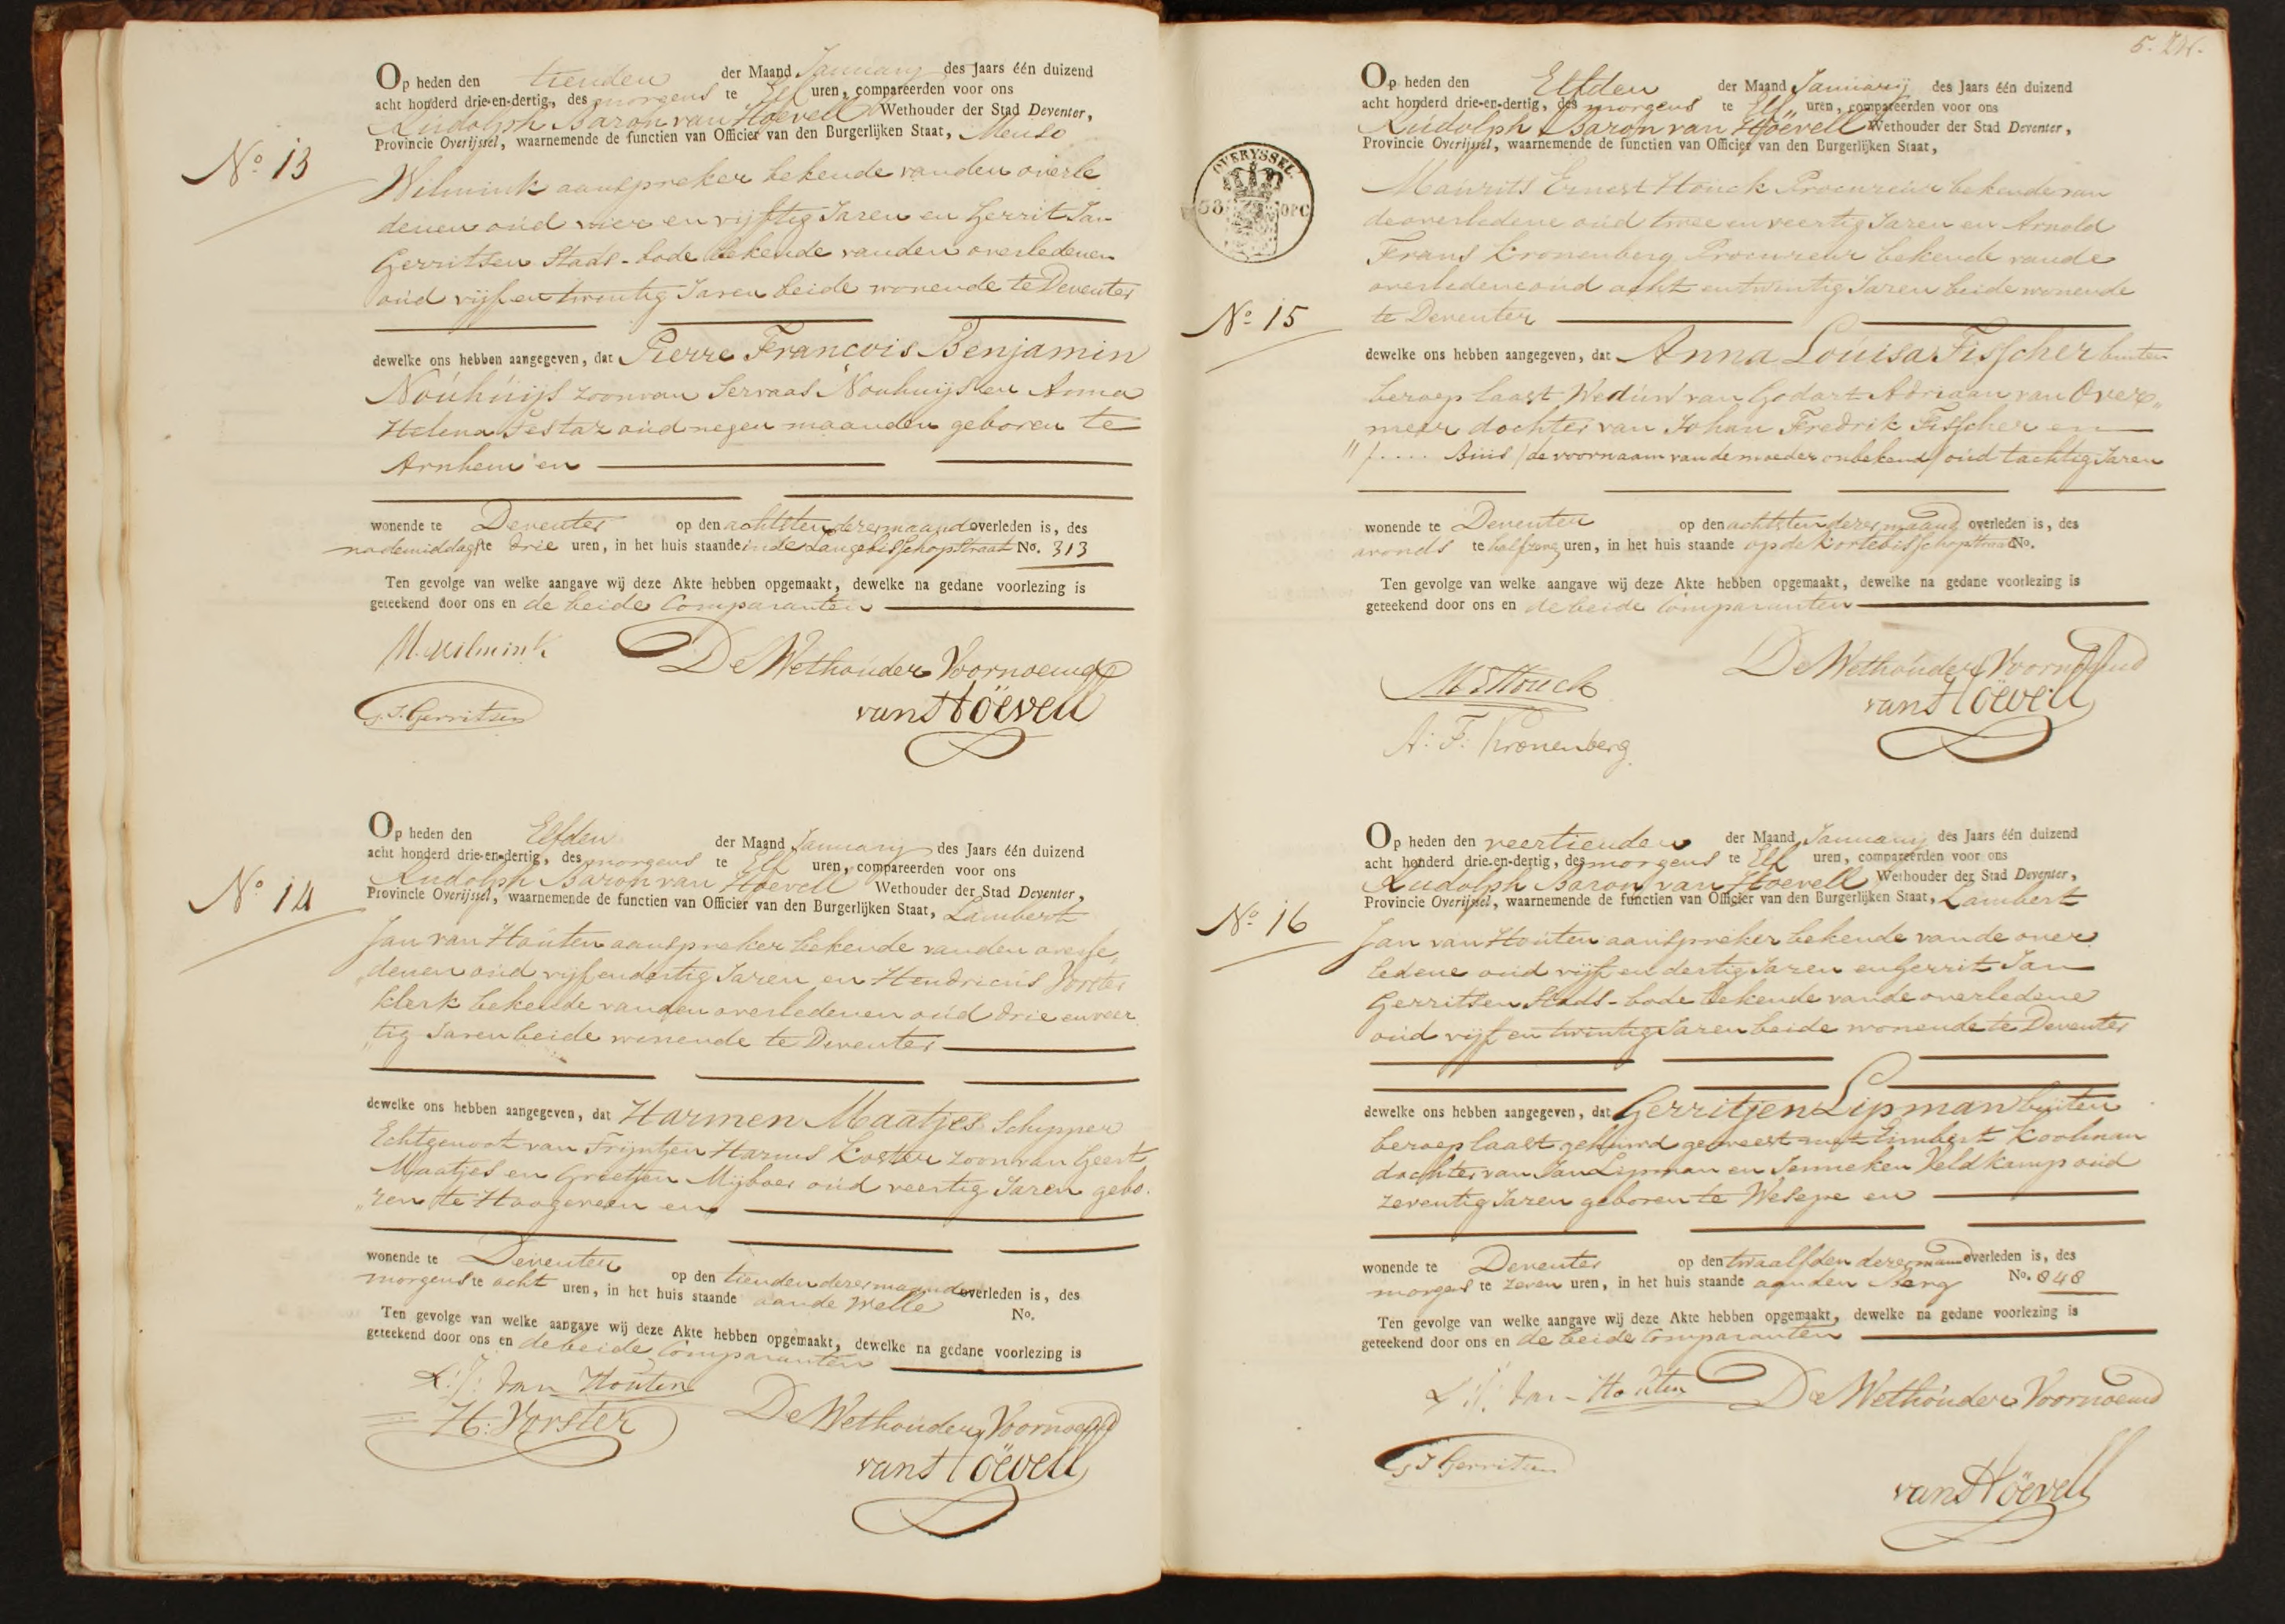 Op heden den tienden der Maand January des Jaars één duizend
acht honderd drie-en-dertig, des morgens te Elf uren, compareerden voor ons
Rudolph Baron van Höevell Wethouder der Stad Deventer,
Provincie Overijssel, waarnemende de functien van Officier van den Burgerlijken Staat, Menso
No 13
Wilmink aanspreker bekende van den overle
denen oud vier en vijftig Jaren en Gerrit Jan
Gerritsen Stads-bode bekende van den overledenen
oud vijf en twintig Jaren beide wonende te Deventer
dewelke ons hebben aangegeven, dat Pierre Francois Benjamin
Noúhúijs zoon van Servaas Nouhuijs en Anna
Helena Testaz oud negen maanden geboren te
Arnhem en
wonende te Deventer op den achtsten dezer maand overleden is, des
nademiddags te drie uren, in het huis staande in de Langebisschopstraat No. 313
Ten gevolge van welke aangave wij deze Akte hebben opgemaakt, dewelke na gedane voorlezing is
geteekend door ons en de beide Comparanten
M. Wilmink
De Wethouder Voornoemd
G. J. Gerritsen
van Höevell
Op heden den Elfden der Maand January des Jaars één duizend
acht honderd drie-en-dertig, des morgens te Elf uren, compareerden voor ons
Rudolph Baron van Hoevell Wethouder der Stad Deventer,
Provincie Overijssel, waarnemende de functien van Officier van den Burgerlijken Staat, Lambert
No 14
Jan van Houten aanspreker bekende van den overle„
„denen oud vijf en dertig Jaren en Hendricus Vorster
klerk bekende van den overledenen oud drie en veer
„tig Jaren beide wonende te Deventer
dewelke ons hebben aangegeven, dat Harmen Maatjes Schipper
Echtgenoot van Trijntjen Harms Koster zoon van Geert
Maatjes en Grietjen Mijboer oud veertig Jaren gebo.
„ren te Hoogeveen en
wonende te Deventer op den tienden dezer maand overleden is, des
morgens te acht uren, in het huis staande aan de Welle No.
Ten gevolge van welke aangave wij deze Akte hebben opgemaakt, dewelke na gedane voorlezing is
geteekend door ons en de beide Comparanten
L: J: van Houten
H: Vorster
De Wethouder Voornoemd
van Höevell
5.
OVERYSSEL
Op heden den Elfden der Maand Januarij des Jaars één duizend
acht honderd drie-en-dertig, des morgens te Elf uren, compareerden voor ons
Rúdolph Baron van Höevell Wethouder der Stad Deventer,
Provincie Overijssel, waarnemende de functien van Officier van den Burgerlijken Staat,
Maurits Ernest Houck Procureur bekende van
de overledene oud twee en veertig Jaren en Arnold
Frans Kronenberg Procureur bekende van de
overledene oud acht en twintig Jaren beide wonende
No 15
te Deventer
dewelke ons hebben aangegeven, dat Anna Loúisa Fisscher buiten
beroep laast Weduw van Godart Adriaan van Over„
meer dochter van Johan Fredrik Fisscher en
"/.... Buis / de voornaam van de moeder onbekend / oud tachtig Jaren
wonende te Deventer op den achtsten dezer maand overleden is, des
avonds te half zeven uren, in het huis staande op de Kortebisschopstraat No.
Ten gevolge van welke aangave wij deze Akte hebben opgemaakt, dewelke na gedane voorlezing is
geteekend door ons en de beide Comparanten
De Wethouder Voornoemd
M E Houck
van Höevell
A: F: Kronenberg
Op heden den veertienden der Maand January des Jaars één duizend
acht honderd drie-en-dertig, des morgens te Elf uren, compareerden voor ons
Rudolph Baron van Hoevell Wethouder der Stad Deventer,
Provincie Overijssel, waarnemende de functien van Officier van den Burgerlijken Staat, Lambert
No 16
Jan van Houten aanspreker bekende van de over
ledene oud vijf en dertig Jaren en Gerrit Jan
Gerritsen Stads-bode bekende van de overledene
oud vijf en twintig Jaren beide wonende te Deventer
dewelke ons hebben aangegeven, dat Gerritjen Lipman buiten
beroep laast gehuwd geweest met Limbert Koolman
dochter van Jan Lipman en Jenneken Veldkamp oud
zeventig Jaren geboren te Wesepe en
wonende te Deventer op den twaalfden dezer maand overleden is, des
morgens te zeven uren, in het huis staande aan den Berg No. 848
Ten gevolge van welke aangave wij deze Akte hebben opgemaakt, dewelke na gedane voorlezing is
geteekend door ons en de beide Comparanten
L: J: van Houten
De Wethouder Voornoemd
G J Gerritsen
van Höevell